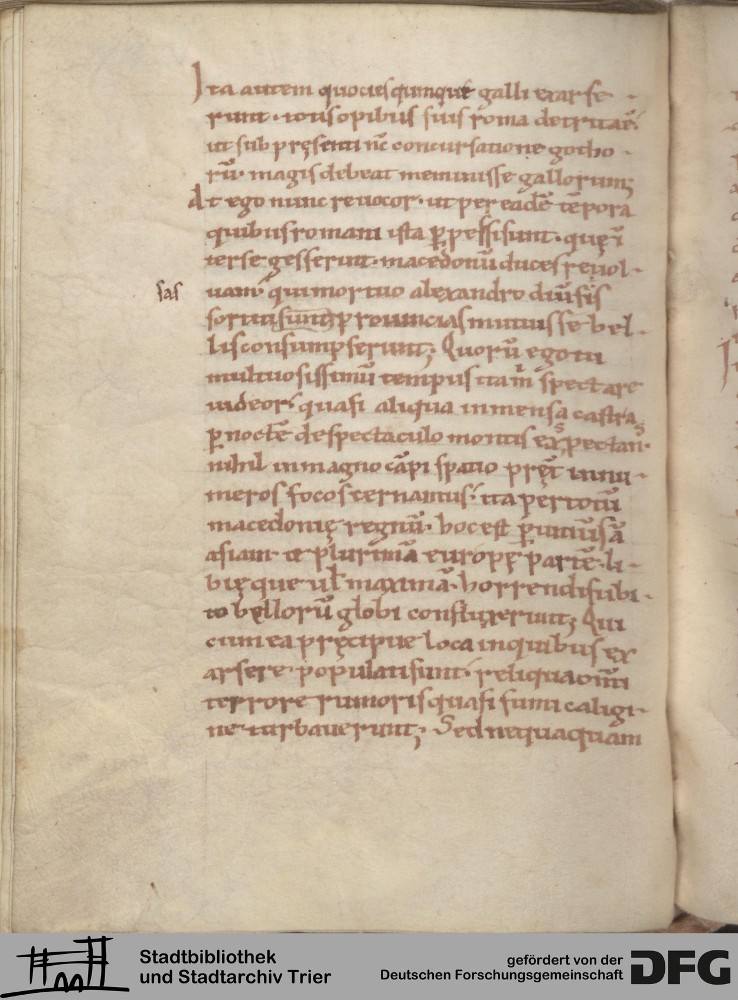 Ita autem quociesqumque galli exarse
runt · totis opibus suis roma detrita ē ·
ut sub pręsenti nc̄ concursatione gotho
rū · magis debeat meminisse gallorum;
At ego nunc reuocor · ut per eadē tēpora
quibus romani ista ꝑpessi sunt · quę ī
ter se gesserint · macedonū duces reuol
uam · qui mortuo alexandro diūsis
sas
sortiti sunt prouincias mutuis se bel
lis consumpserunt; Quorū ego tu
multuosissimū tempus ita m̄ spectare
uideor · quasi aliqua inmensa castra
ꝑ noctē despectaculo montis exspectans ·
nihil in magno cāpi spatio pręt̄ innu
meros focos cernamus · ita per totū
macedonię regnū · hoc est ꝑ uniūsā
asiam · et plurimā europę partē · li
bięque ul̄ maximā · horrendi subi
to bellorū globi confluxerunt; Qui
cum ea pręcipue loca in quibus ex
arsere · populati sunt · reliqua om̄i
terrore rumoris quasi fumi caligi
ne turbauerunt; Sed nequaquam
Stadtbibliothek
und Stadtarchiv Trier
gefördert von der
Deutschen Forschungsgemeinschaft
DFG